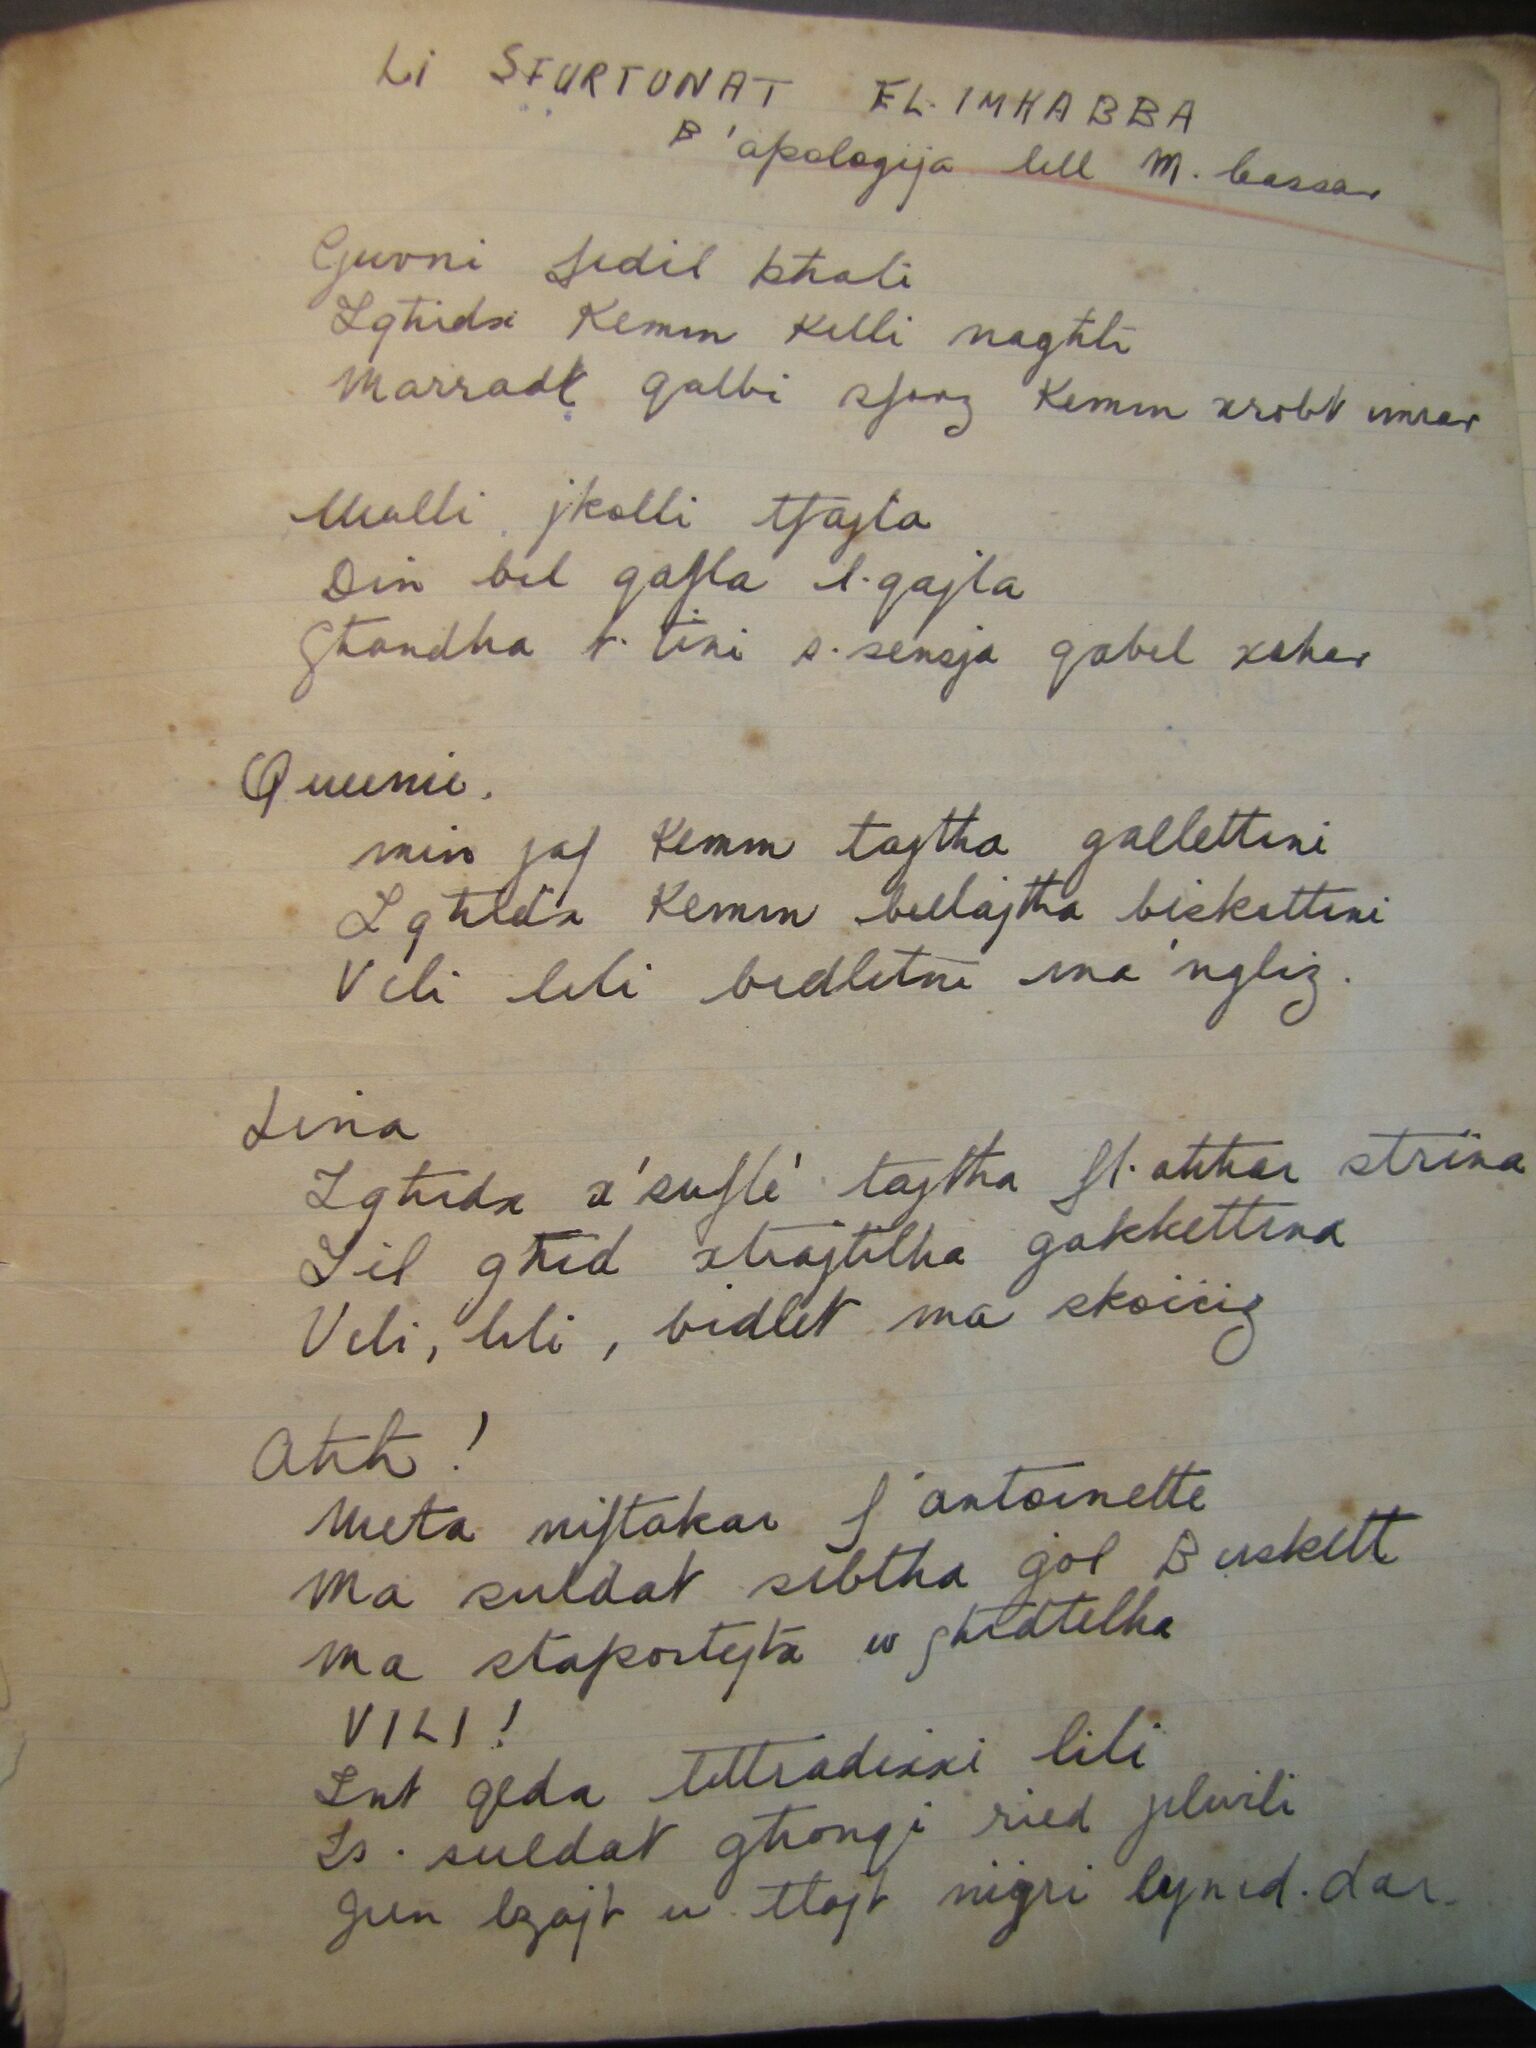 Li SFURTUNAT FL-IMĦABBA
B'apologija lill M. Cassar
Ġuvni fidil bħali
Tgħidx Kemm Kelli nagħli
Marradt qalbi sforz Kemm xrobt imrar
Mulli jkolli tfajla
Din bil gafla l-qajla
Għandha t-tini s-sensja qabel xahar
Queenie.
min jaf Kemm tajtha gallettini
Tgħidx Kemm billajtha biskuttini
Vili lili bidlitni ma 'ngliz.
Lina
Tgħidx x'suflè tajtha fl-aħħar strina
Jiel għid xtrajtilha ġakkettina
Vili, lili, bidlet ma skoċċiż
Aħħ!
Meta niftakar f'Antoinette
Ma suldat sibtha ġol Buskett
Ma staportejtx u għidtilha
VILI!
Int qeda tittradixxi lili
Is-suldat għonqi ried jilwili
Ġien bżajt u tlajt niġri lejn id-dar.